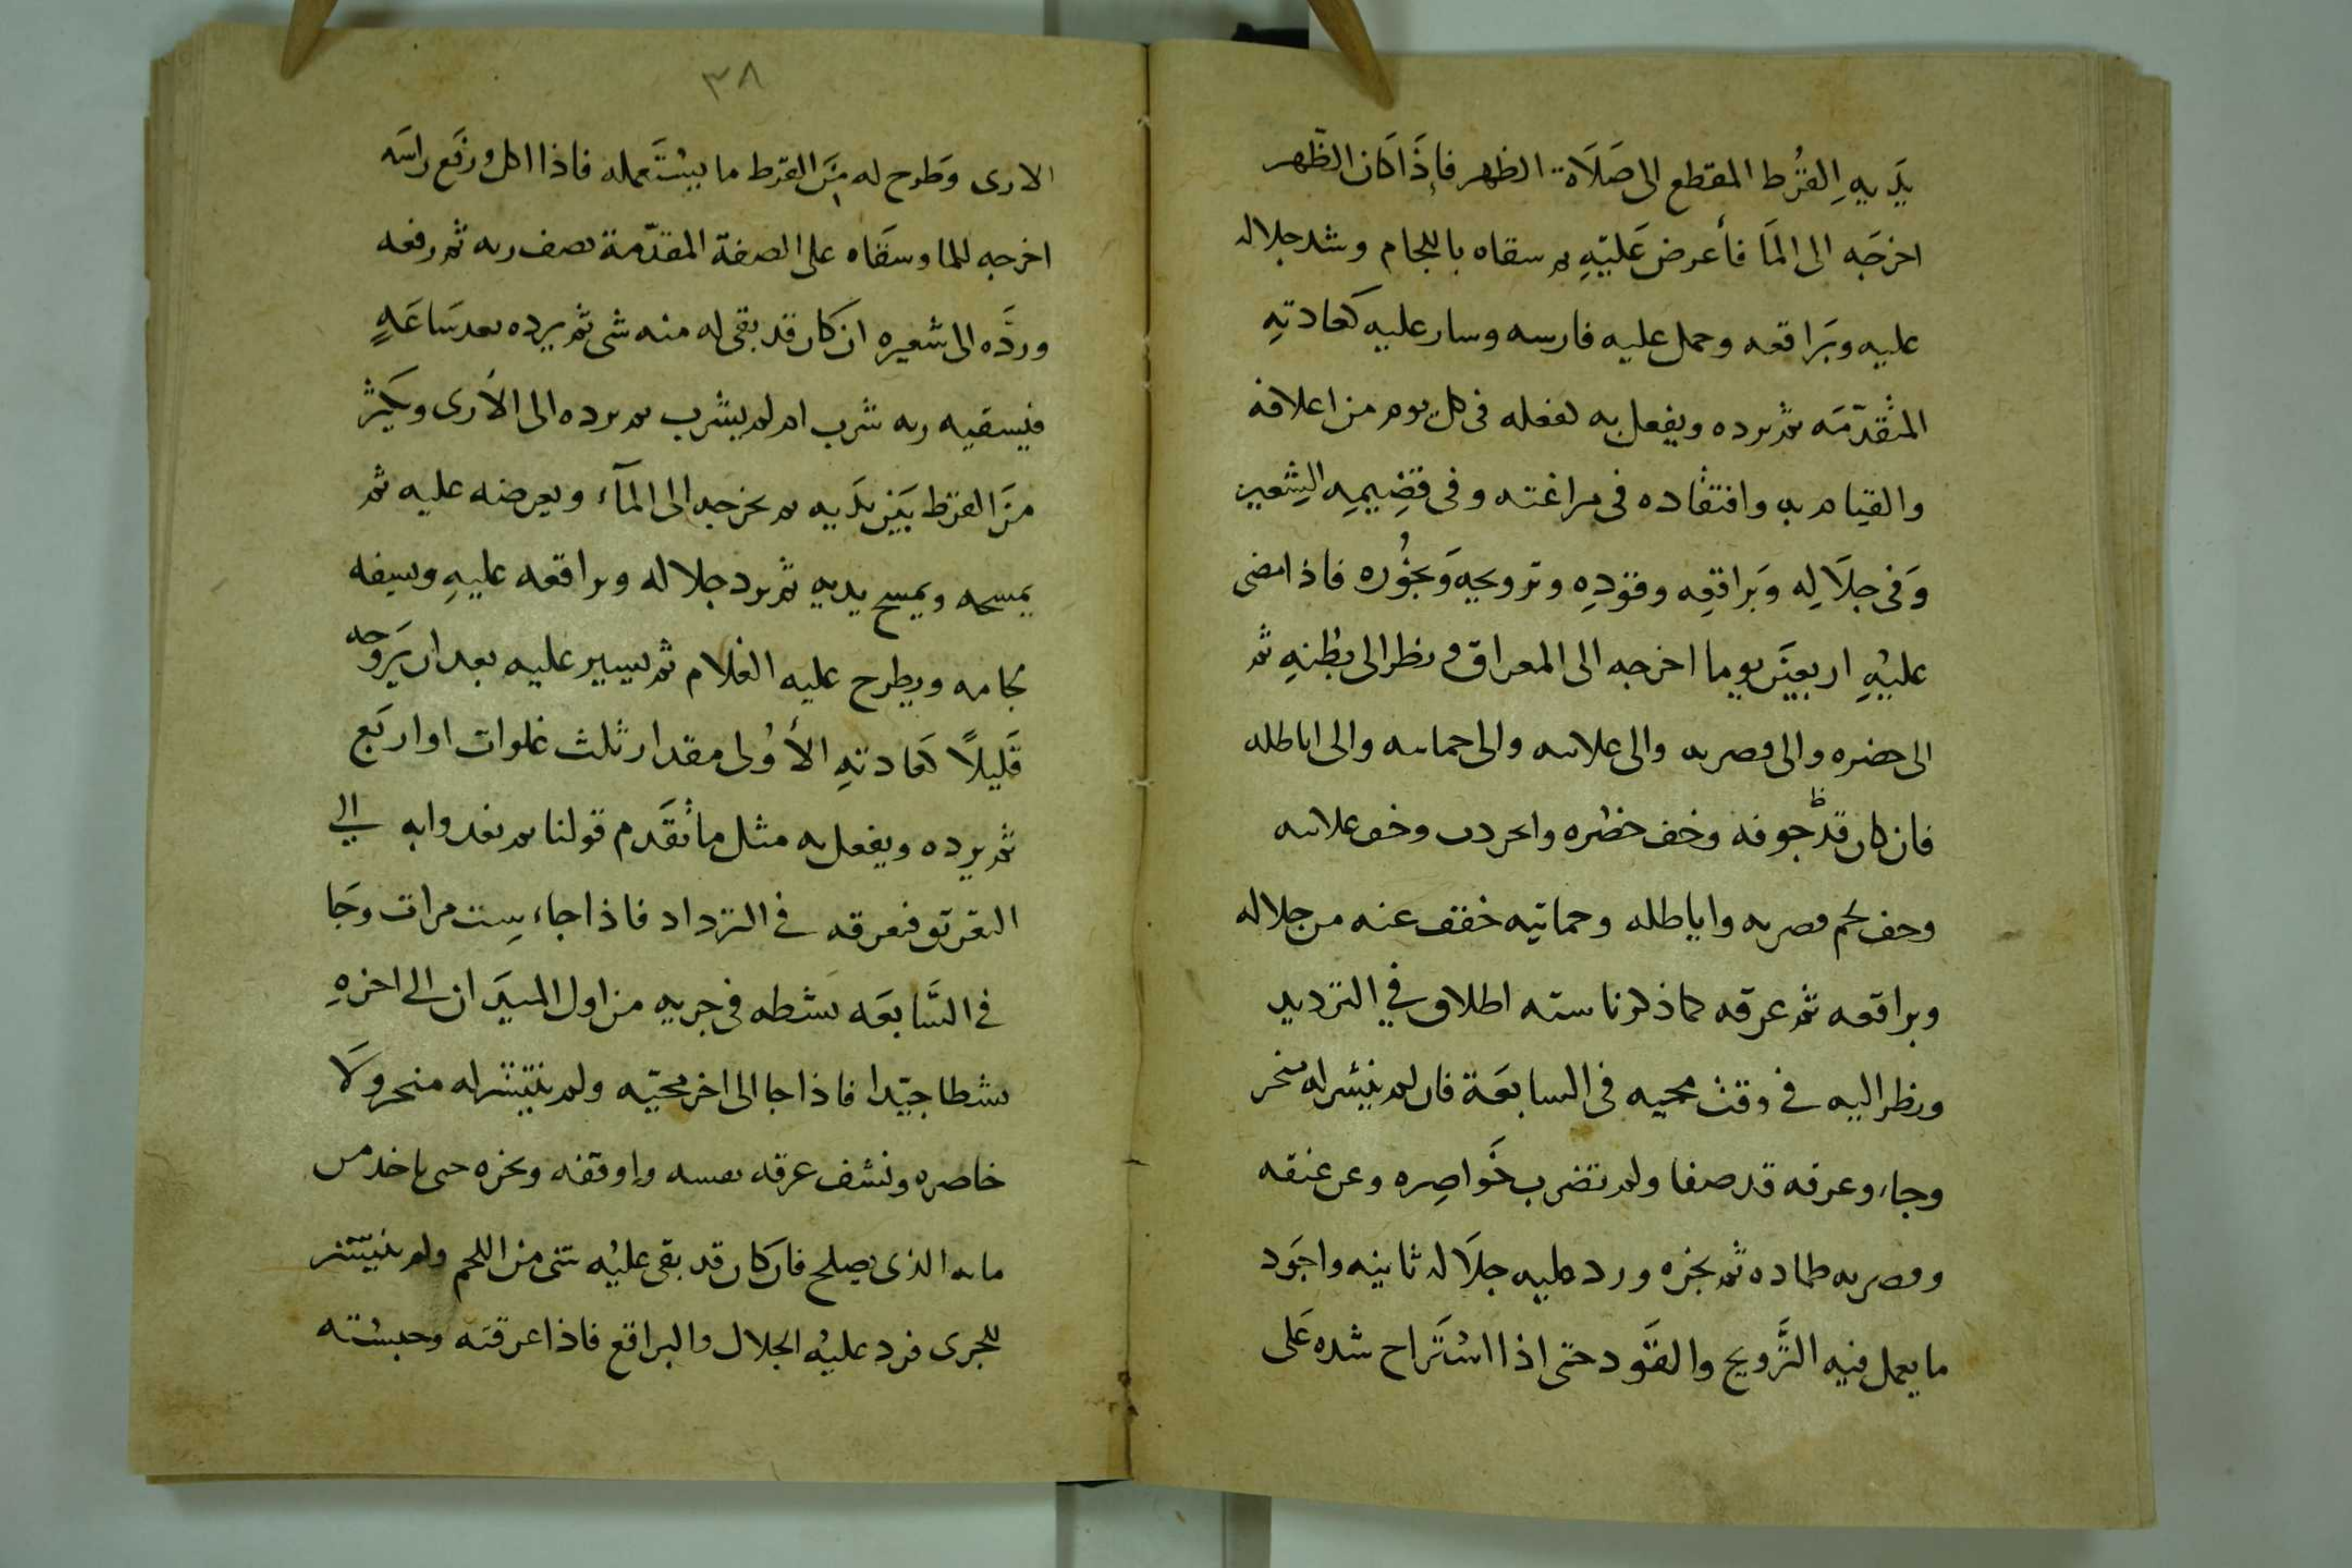 يَديهِ القُرط المقطع الى صَلَاة الظهر فإِذَا كَان الظّهر
اخرجَه الى المَا فأعرض عَليَهِ ثم سقاه باللجام وشد جلاله
عليه وبَراقعه وحمل عليه فارسه وسار عليه كعادتهِ
المتقدّمَه ثم يرده ويفعل به كفعله فى كل يوم من اعلافه
والقيام به وافتقاده فى مراغته وفى قضِيمِه الشعير
وَفى جلَالِه وَبَراقعِه وقودِهِ وترويحِه وَبخُوره فاذا مضى
عليْهِ اربعيَن يوما اخرجه الى المعراق ونظر الى بطْنهِ ثم
الى حضره والى وصريه والى علاىىه والى حماىىه والى اباطله
فان كان قد جوفه وخف خضره وانحردت وخف علاىىه
وخف لحم وصريه واباطله وحماتيه خفف عنه من جلاله
وبراقعه ثم عرقه كما ذكرنا سته اطلاق في الترديد
ونظر اليه في وقت مجيه فى السابعَة فان لم ينتشر له منخر
وجاء وعرقه قد صفا ولم تضرب خَواصِره وعرعنقه
ووصريه طماده ثم بخره ورد عليه جلَاله ثانيه واجَود
ما يعمل فيه التَّرويح والقَود حتى اذا اسْتَراح شده عَلى
٣٨
الارى وَطرح له مِنَ القرط ما يسْتَعمله فاذا اكل ورفَع راسَه
اخرجه للما وسقَاه على الصفة المقدّمة نصف ريه ثم رفعه
وردَّه الى شعيره ان كان قد بقى له منه شى ثم يرده بعد سَاعَةٍ
فيسقيه ريه شرب ام لم يشرب ثم يرده الى الأرى ويكثر
منَ القرط بَيَن يدَيه ثم يخرجه الى المآء ويعرضه عليه ثم
يمسحه ويمسح يديه ثم يرد جلاله وبراقعه عليهِ وىىىفه
لجامه ويطرح عليه الغلام ثم يسير عليه بعد ان يَروّحه
قَليلاً كعَادتهِ الأوُلى مقدار ثلث غلوات او اربَع
ثم يرده ويفعل به مثل ما تقَدم قولنا ثم نغدوا به الي
التعرىق فنعرقه في الترداد فاذا جاء ست مرات وجَا
في السَّابعَه نشطه فى جريه من اول الميدَان الي اخرهِ
نشطا جيّدا فاذا جا الى اخر مجيّه ولم ينتشر له منخر ولَا
خاصره ونشف عرقه نفسه واوقفه وبخره حتى ياخذ من
مايه الذى يصلح فان كان قد بقى عليْه شى من اللحم ولم ينتشر
للجرى فرد عليْه الجلال والبراقع فاذا عرقته وحبسْته